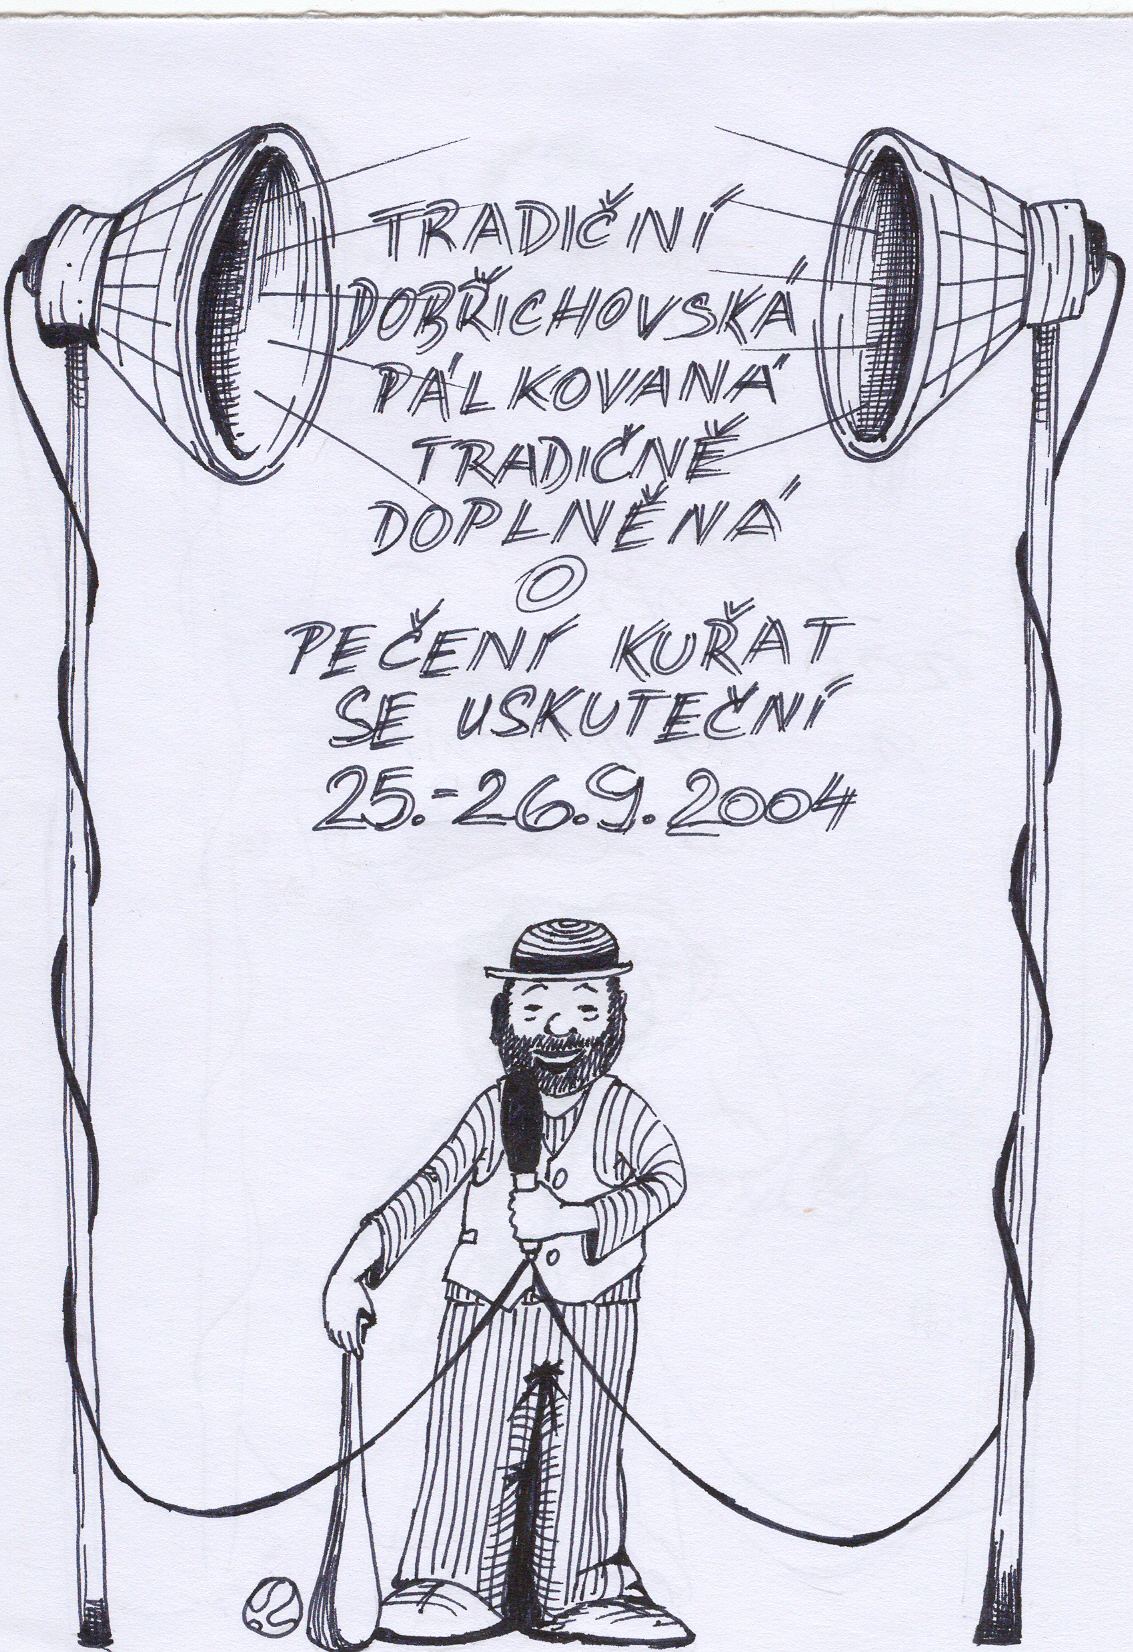 TRADIČNÍ
DOBŘICHOVSKÁ
PÁLKOVANÁ
TRADIČNĚ
DOPLNĚNÁ
O
PEČENÍ KUŘAT
SE USKUTEČNÍ
25.-26.9.2004